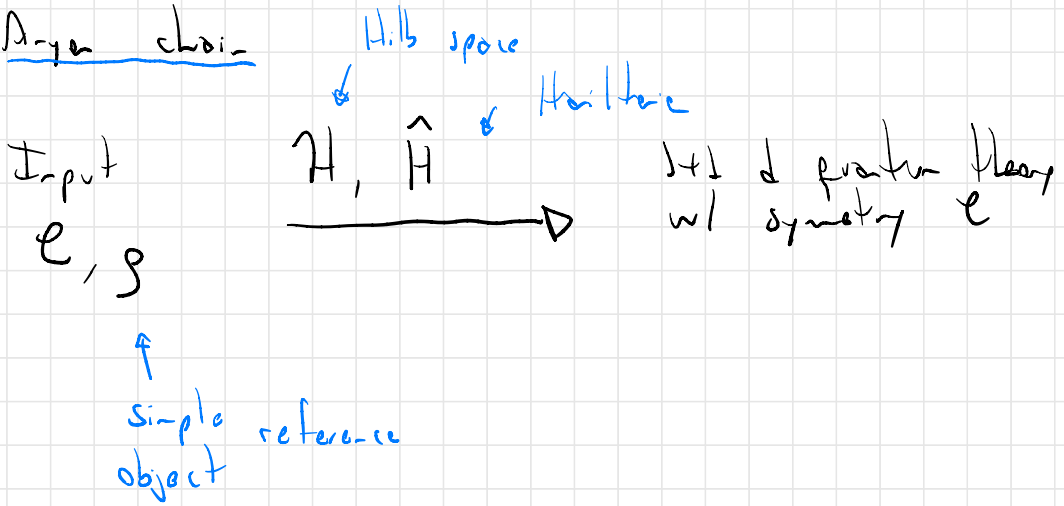 Anyon chain
Hilb space
Hamiltonian
Input
H, Ĥ
1+1 d quantum theory
w/ symmetry C
C, ρ
simple reference
object